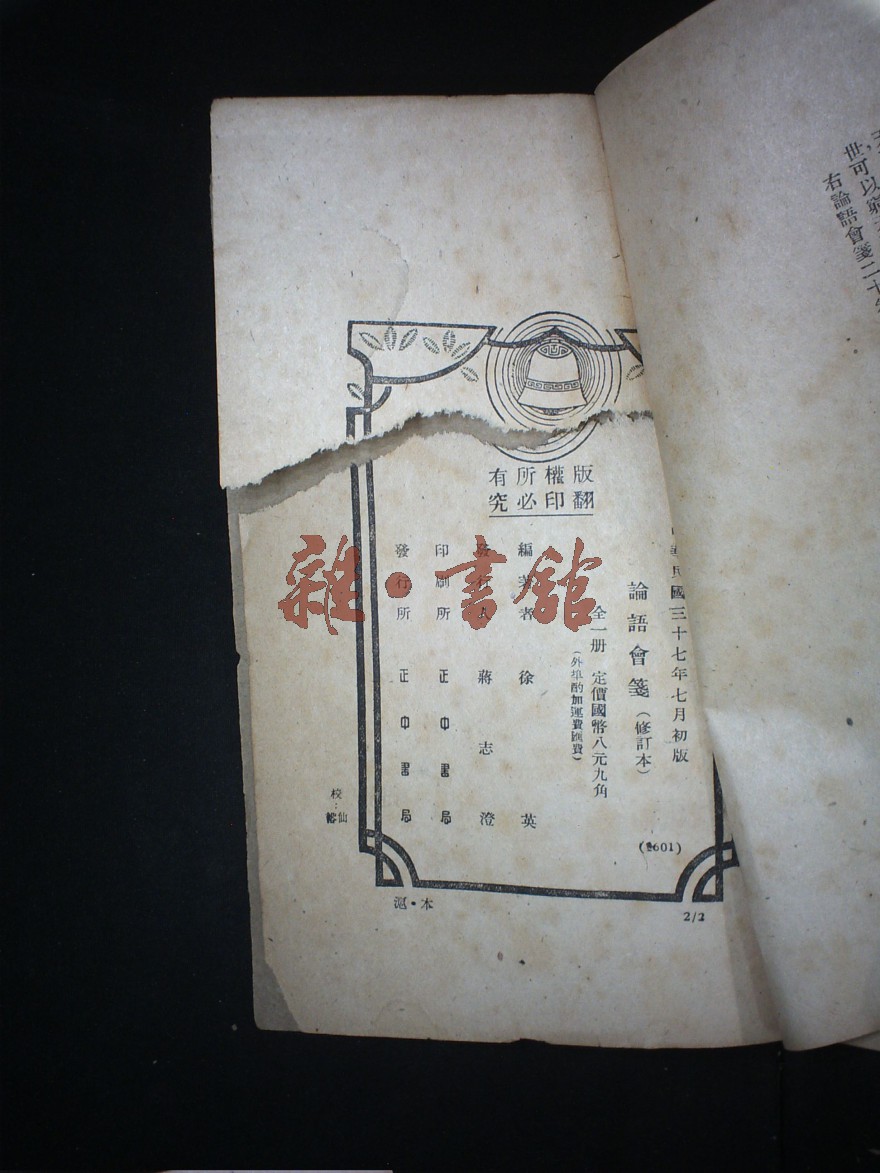 世,可以
右論語會箋二十
版權所有
翻印必究
民國三十七年七月初版
論語會箋(修訂本)
全一册 定價國幣八元九角
(外埠酌加運費匯費)
編著者 徐英
發行人 蔣志澄
印刷所 正中書局
發行所 正中書局
校:仙
(2601)
滬·本
2/2
雜·書館